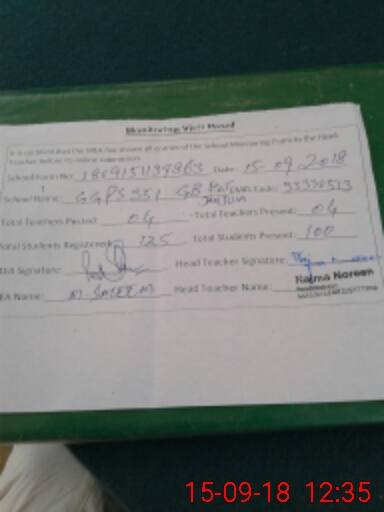 Monitoring Visit Proof
It is certified that the MEA has shown all queries of the School Monitoring Form to the Head
Teacher before its online submission.
School Form No: Date: 15-09-2018
School Name GGPS 351 GB Code: 33330513
Total Teachers Posted: 04 Total Teachers Present: 04
Total Students Registered: 125 Total Students Present: 100
MEA Signature: Head Teacher Signature:
MEA Name: M. SALEEM Head Teacher Name: Najma Noreen
15-09-18 12:35